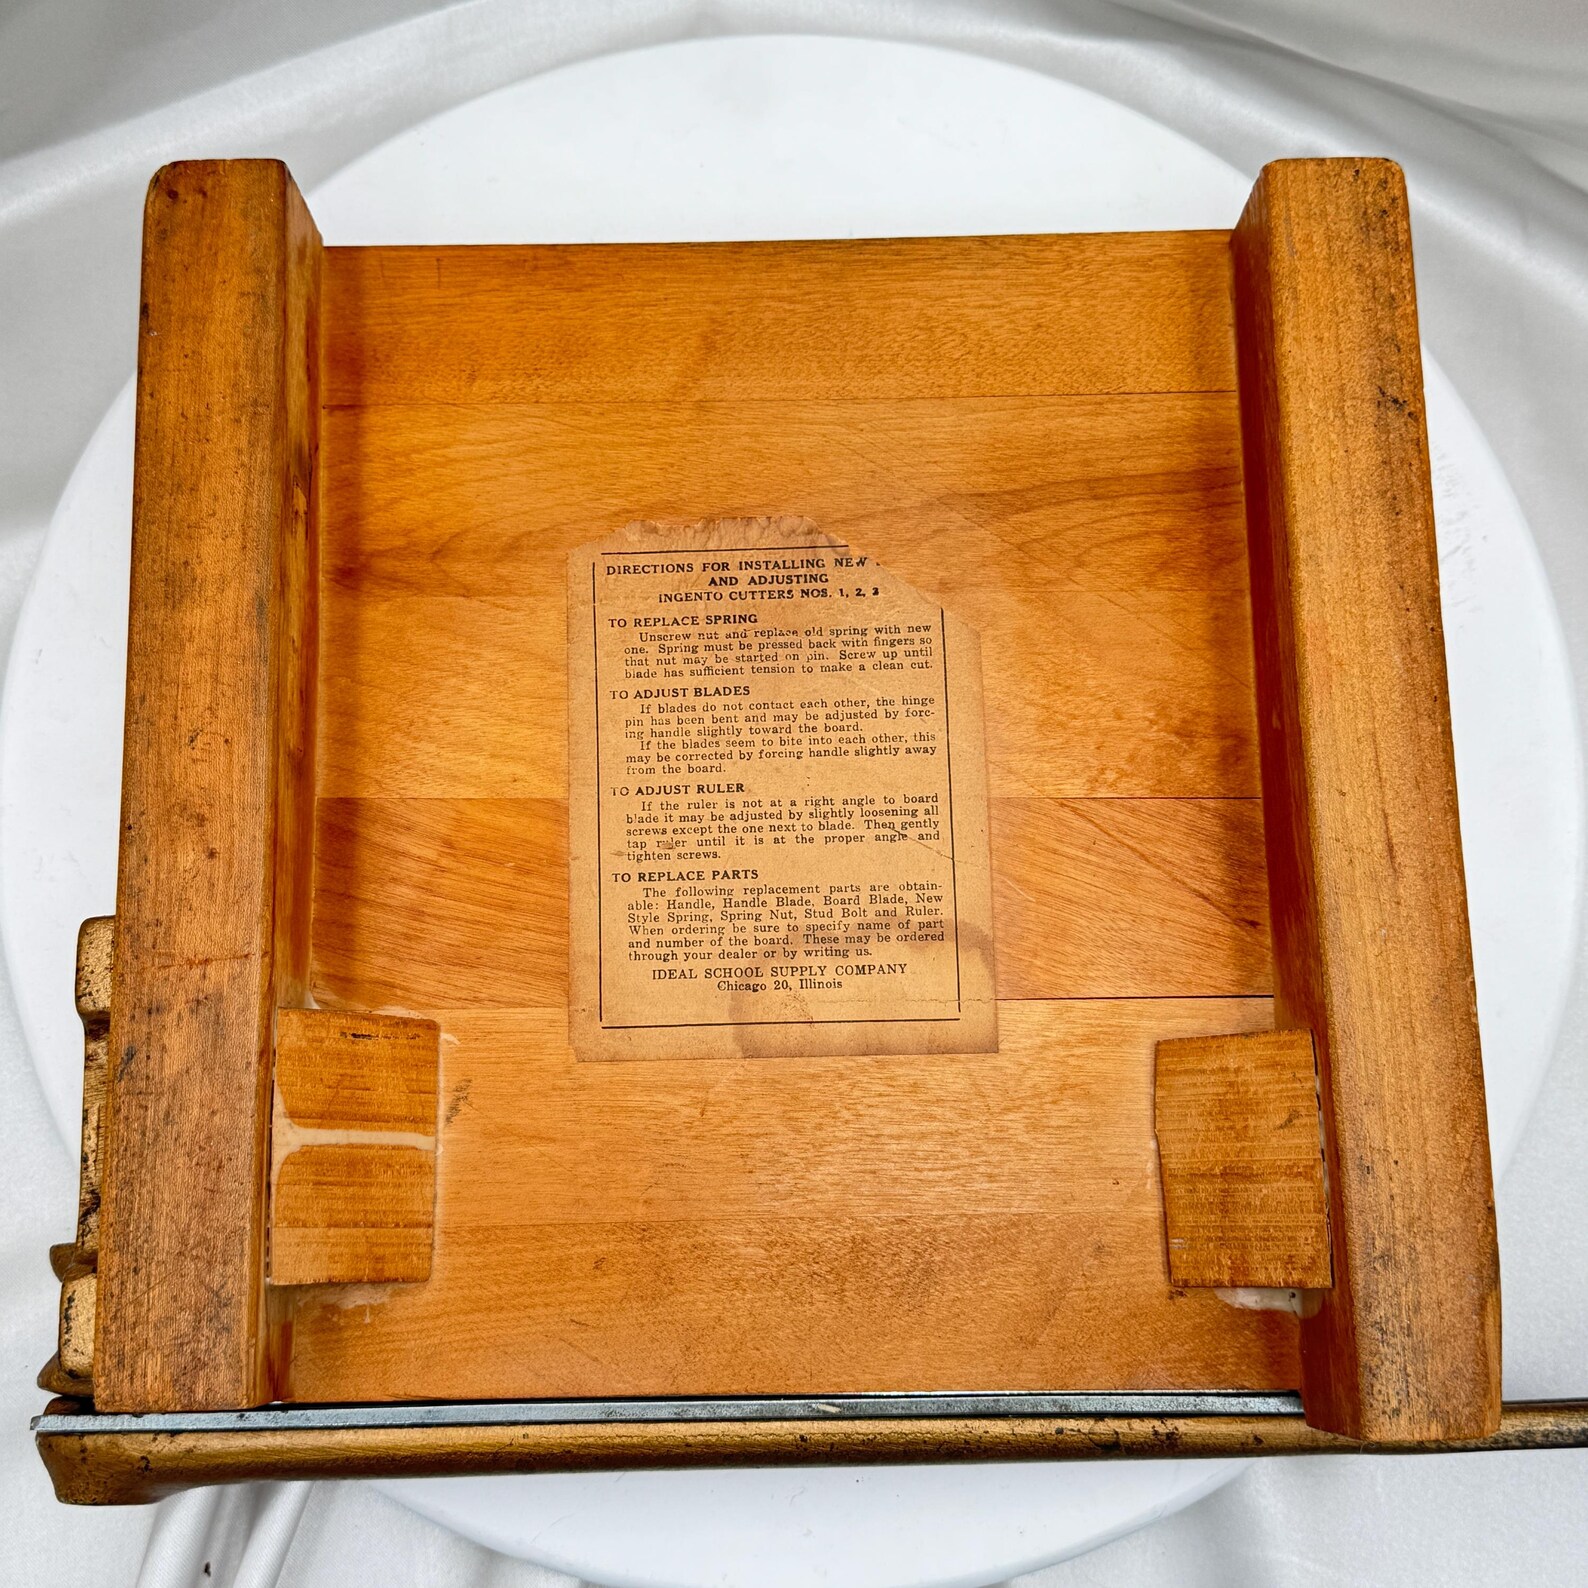 DIRECTIONS FOR INSTALLING NEW
AND ADJUSTING
INGENTO CUTTERS NOS. 1, 2, 3
TO REPLACE SPRING
Unscrew nut and replace old spring with new
one. Spring must be pressed back with fingers so
that nut may be started on pin. Screw up until
blade has sufficient tension to make a clean cut.
TO ADJUST BLADES
If blades do not contact each other, the hinge
pin has been bent and may be adjusted by forc-
ing handle slightly toward the board.
If the blades seem to bite into each other, this
may be corrected by forcing handle slightly away
from the board.
TO ADJUST RULER
If the ruler is not at a right angle to board
blade it may be adjusted by slightly loosening all
screws except the one next to blade. Then gently
tap ruler until it is at the proper angle and
tighten screws.
TO REPLACE PARTS
The following replacement parts are obtain-
able: Handle, Handle Blade, Board Blade, New
Style Spring, Spring Nut, Stud Bolt and Ruler.
When ordering be sure to specify name of part
and number of the board. These may be ordered
through your dealer or by writing us.
IDEAL SCHOOL SUPPLY COMPANY
Chicago 20, Illinois